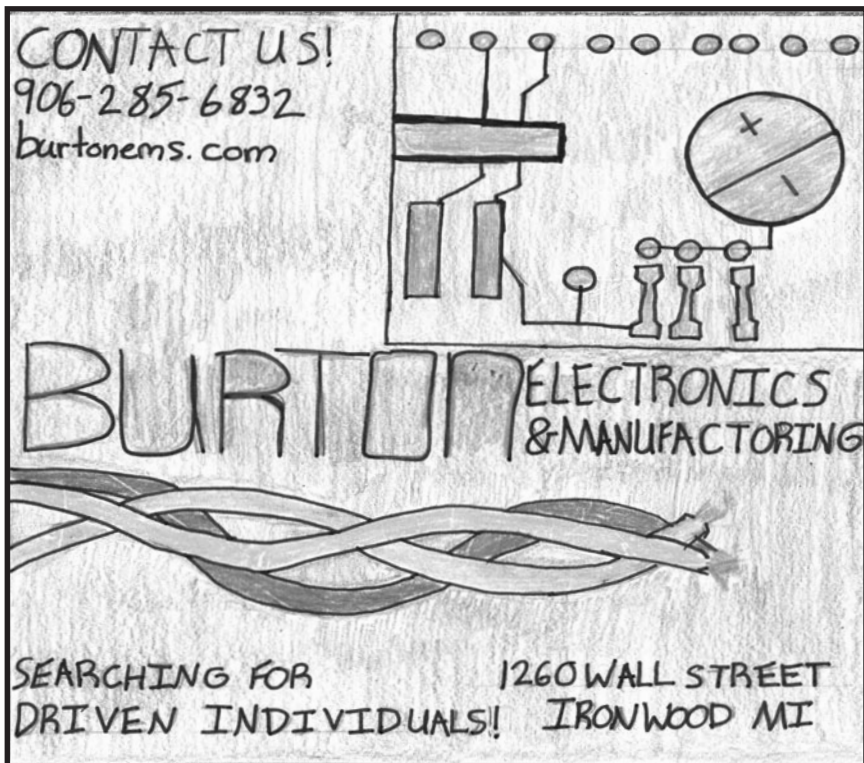 CONTACT US!
906-285-6832
burtonems.com
+
-
BURTON
ELECTRONICS
&MANUFACTORING
SEARCHING FOR
DRIVEN INDIVIDUALS!
1260 WALL STREET
IRONWOOD MI